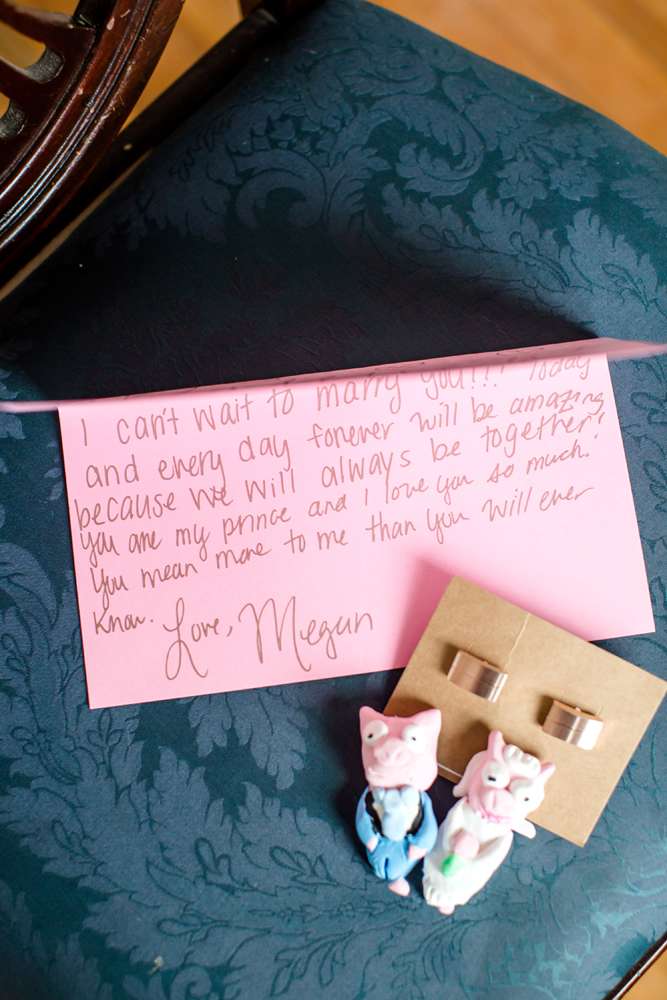 I can't wait to marry you!!! Today
and every day forever will be amazing
because we will always be together!
You are my prince and I love you so much!
You mean more to me than you will ever
know. Love, Megan